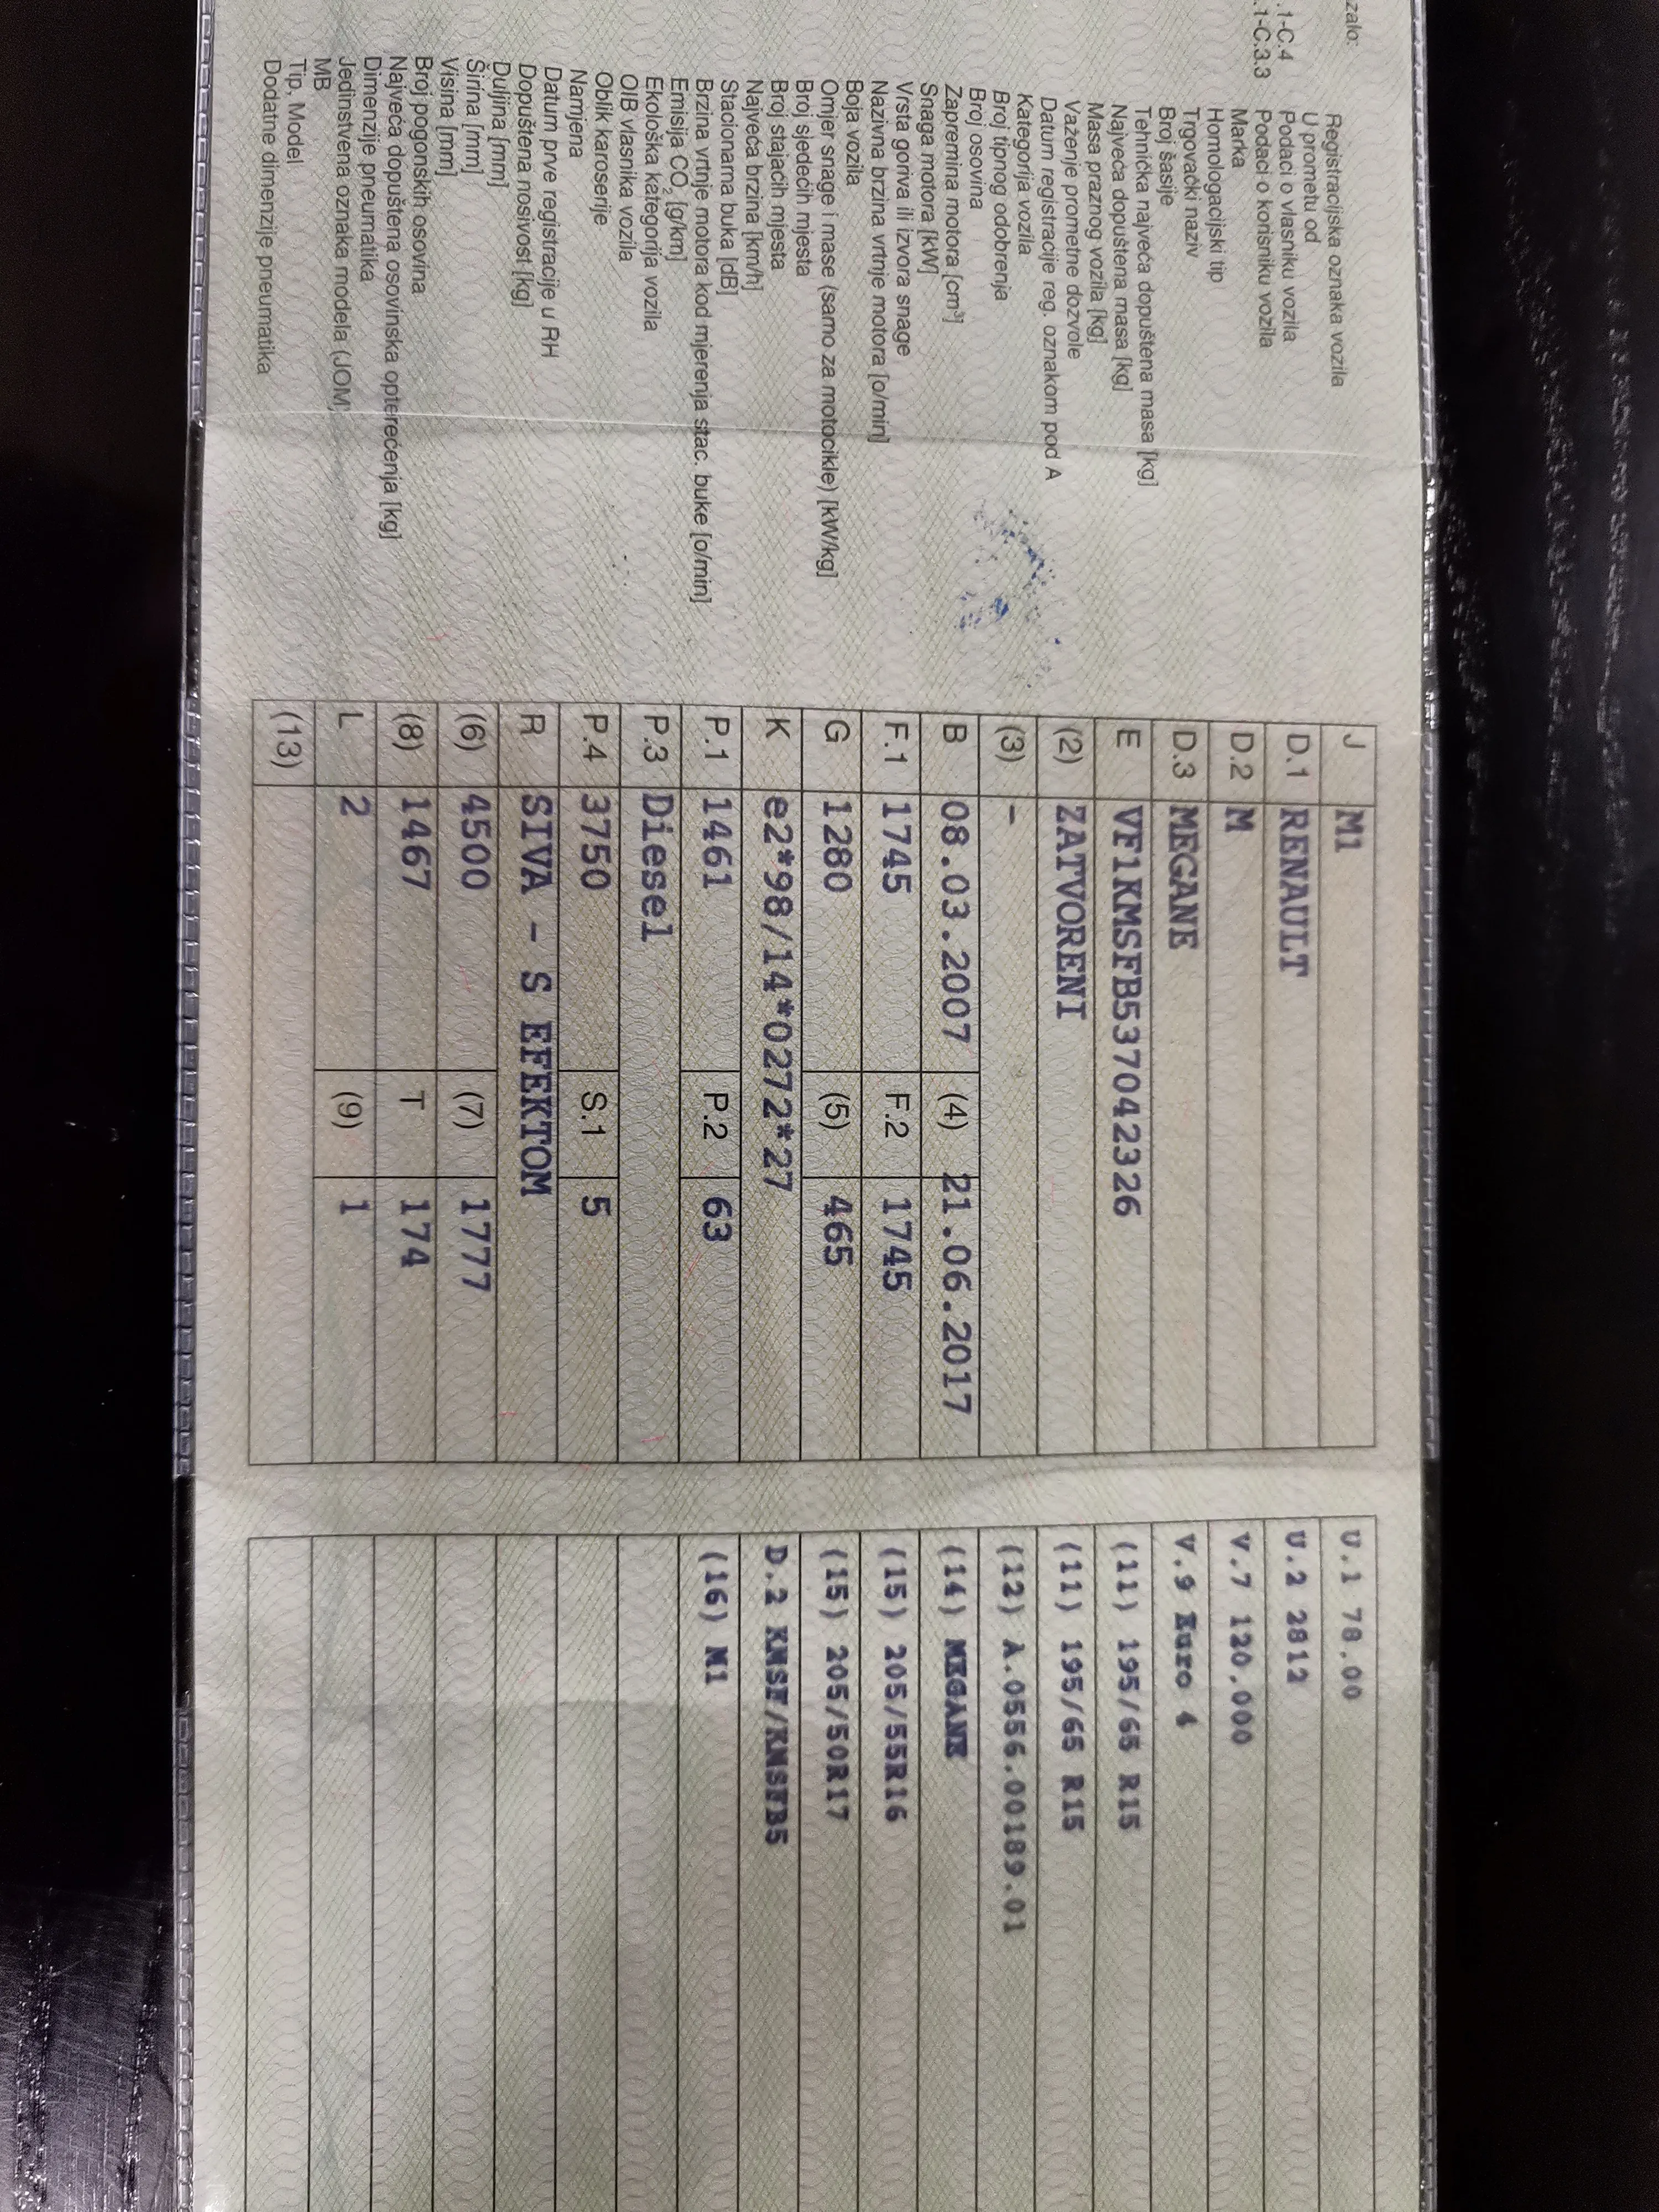 zalo:
.1-C.4
.1-C.3.3
Registracijska oznaka vozila
U prometu od
Podaci o vlasniku vozila
Podaci o korisniku vozila
Marka
Homologacijski tip
Trgovački naziv
Broj šasije
Tehnička najveća dopuštena masa [kg]
Najveća dopuštena masa [kg]
Masa praznog vozila [kg]
Važenje prometne dozvole
Datum registracije reg. oznakom pod A
Kategorija vozila
Broj tipnog odobrenja
Broj osovina
Zapremina motora [cm³]
Snaga motora [kW]
Vrsta goriva ili izvora snage
Nazivna brzina vrtnje motora [o/min]
Boja vozila
Omjer snage i mase (samo za motocikle) [kW/kg]
Broj sjedećih mjesta
Broj stajaćih mjesta
Najveća brzina [km/h]
Stacionarna buka [dB]
Brzina vrtnje motora kod mjerenja stac. buke [o/min]
Emisija CO₂ [g/km]
Ekološka kategorija vozila
OIB vlasnika vozila
Oblik karoserije
Namjena
Datum prve registracije u RH
Dopuštena nosivost [kg]
Duljina [mm]
Širina [mm]
Visina [mm]
Broj pogonskih osovina
Najveća dopuštena osovinska opterećenja [kg]
Dimenzije pneumatika
Jedinstvena oznaka modela (JOM)
MB
Tip, Model
Dodatne dimenzije pneumatika
J M1
D.1 RENAULT
D.2 M
D.3 MEGANE
E VF1KMSFB537042326
(2) ZATVORENI
(3) -
B 08.03.2007 (4) 21.06.2017
F.1 1745 F.2 1745
G 1280 (5) 465
K e2*98/14*0272*27
P.1 1461 P.2 63
P.3 Diesel
P.4 3750 S.1 5
R SIVA - S EFEKTOM
(6) 4500 (7) 1777
(8) 1467 T 174
L 2 (9) 1
(13)
U.1 78.00
U.2 2812
V.7 120,000
V.9 Euro 4
(11) 195/65 R15
(11) 195/65 R15
(12) A.0556.00189.01
(14) MEGANE
(15) 205/55R16
(15) 205/50R17
D.2 KMSF/KMSFB5
(16) M1